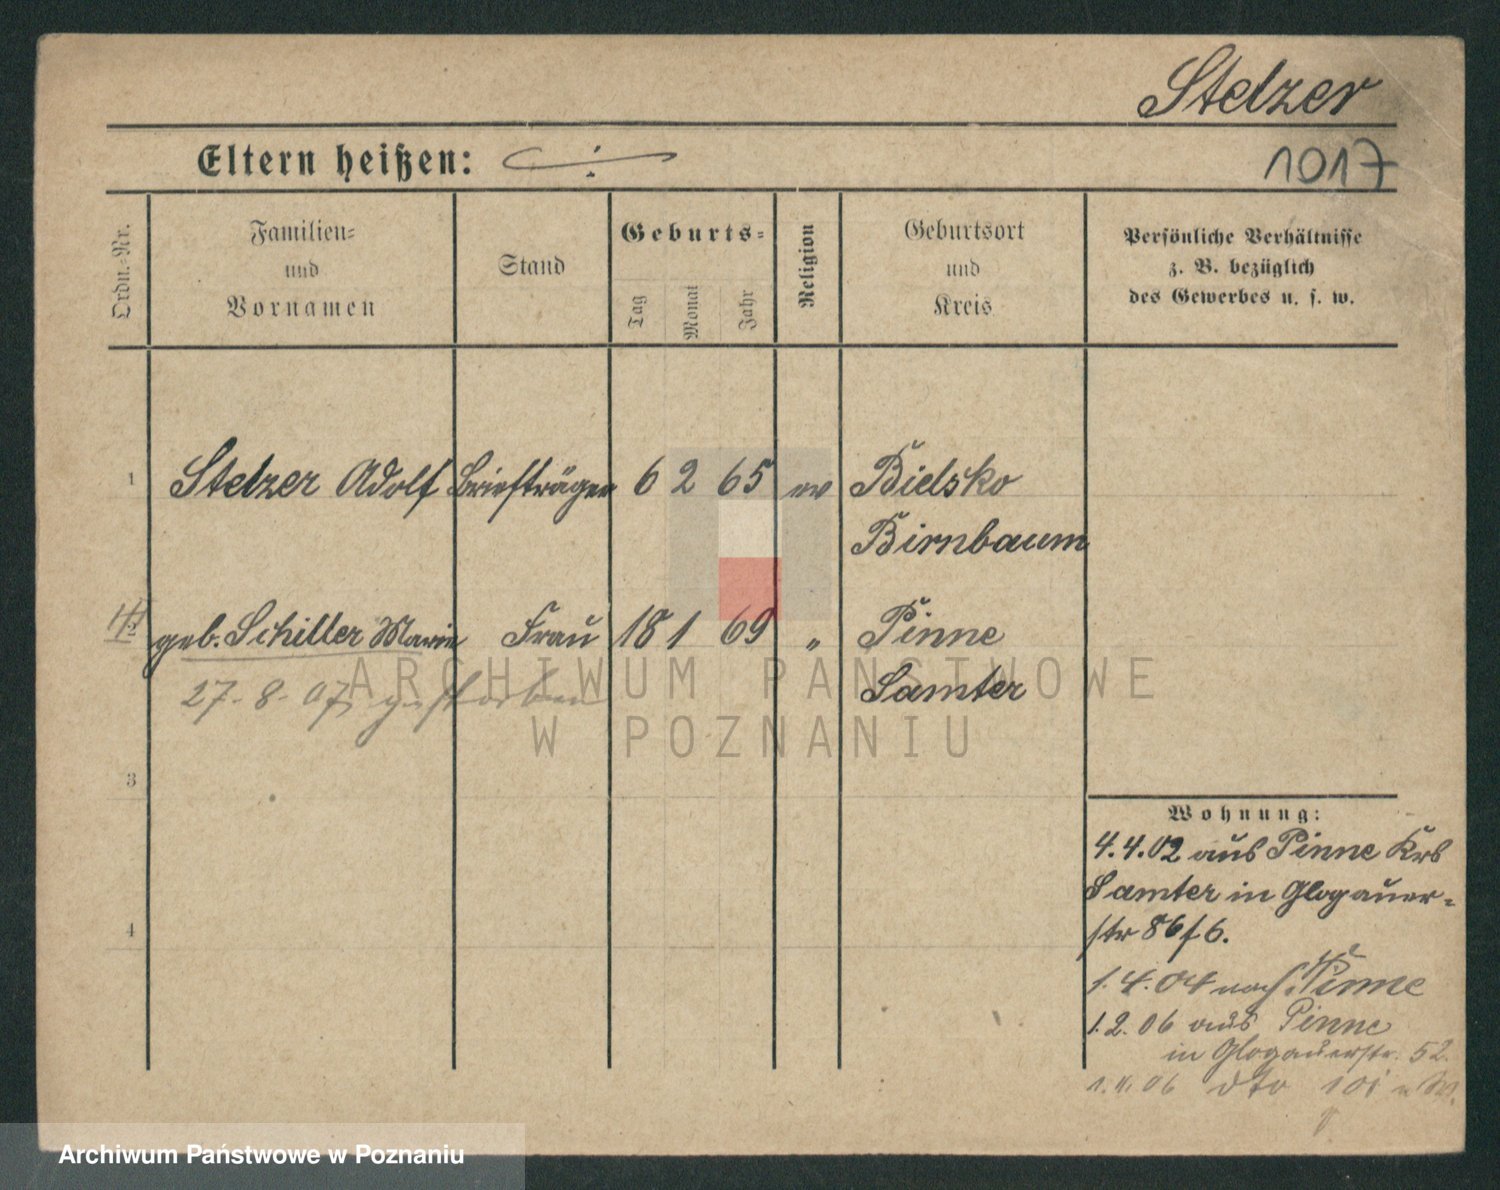 Stelzer
Eltern heißen: ./.
1017
Ordn.-Nr.
Familien-
und
Vornamen
Stand
Geburts-
Tag
Monat
Jahr
Religion
Geburtsort
und
Kreis
Persönliche Verhältnisse
z. B. bezüglich
des Gewerbes u. s. w.
1 Stelzer Adolf Briefträger 6 2 65 ev Bielsko
Birnbaum
geb. Schiller Marie Frau 18 1 69 „ Pinne
Samter
27. 8. 07 gestorben
ARCHIWUM PAŃSTWOWE
W POZNANIU
3
4
Wohnung:
4.4.02 aus Pinne Krs
Samter in Glogauer-
str 86
1.4.04 nach Pinne
1.2.06 aus Pinne
in Glogauerstr. 52.
1.4.06 dto 101
Archiwum Państwowe w Poznaniu